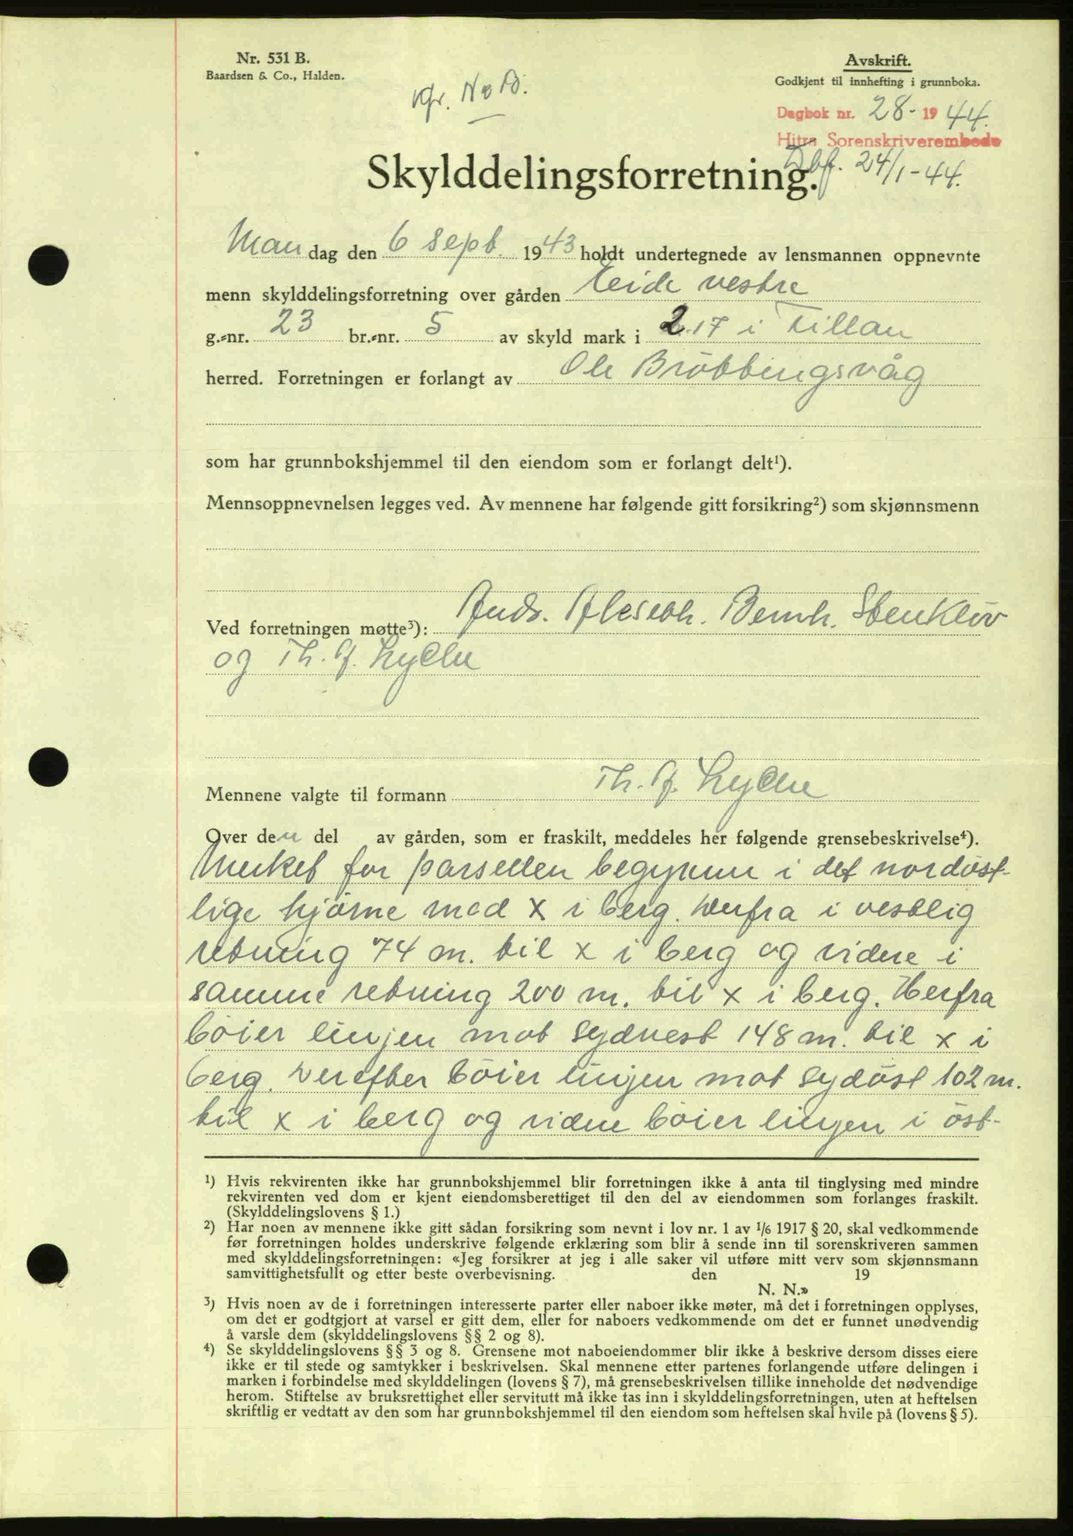 Nr. 531 B.
Baardsen & Co., Halden.
Avskrift.
Godkjent til innhefting i grunnboka.
Dagbok nr. 28 - 1944.
Hitra Sorenskriverembede
24/1-44.
Skylddelingsforretning.
Mandag den 6 sept. 1943 holdt undertegnede av lensmannen oppnevnte
menn skylddelingsforretning over gården Eide vestre
g.-nr. 23 br.-nr. 5 av skyld mark i 2.17 i Fillan
herred. Forretningen er forlangt av Ole Bröttingsvåg
som har grunnbokshjemmel til den eiendom som er forlangt delt¹).
Mennsoppnevnelsen legges ved. Av mennene har følgende gitt forsikring²) som skjønnsmenn
Ved forretningen møtte³): Ands. Bernh. Stenklöv
og Th. J. Lykke
Mennene valgte til formann Th. J. Lykke
Over den del av gården, som er fraskilt, meddeles her følgende grensebeskrivelse⁴).
Merket for parsellen begynner i det nordöst-
lige hjörne med X i berg. Derfra i vestlig
retning 74 m. til x i berg og videre i
samme retning 200 m. til x i berg. Herfra
böier linjen mot sydvest 148 m. til x i
berg. Derefter böier linjen mot sydöst 102 m.
til x i berg og videre böier linjen i öst-
¹) Hvis rekvirenten ikke har grunnbokshjemmel blir forretningen ikke å anta til tinglysing med mindre
rekvirenten ved dom er kjent eiendomsberettiget til den del av eiendommen som forlanges fraskilt.
(Skylddelingslovens § 1.)
²) Har noen av mennene ikke gitt sådan forsikring som nevnt i lov nr. 1 av 1/6 1917 § 20, skal vedkommende
før forretningen holdes underskrive følgende erklæring som blir å sende inn til sorenskriveren sammen
med skylddelingsforretningen: «Jeg forsikrer at jeg i alle saker vil utføre mitt verv som skjønnsmann
samvittighetsfullt og etter beste overbevisning. den 19
N. N.»
³) Hvis noen av de i forretningen interesserte parter eller naboer ikke møter, må det i forretningen opplyses,
om det er godtgjort at varsel er gitt dem, eller for naboers vedkommende om det er funnet unødvendig
å varsle dem (skylddelingslovens §§ 2 og 8).
⁴) Se skylddelingslovens §§ 3 og 8. Grensene mot naboeiendommer blir ikke å beskrive dersom disses eiere
ikke er til stede og samtykker i beskrivelsen. Skal mennene etter partenes forlangende utføre delingen i
marken i forbindelse med skylddelingen (lovens § 7), må grensebeskrivelsen tillike inneholde det nødvendige
herom. Stiftelse av bruksrettighet eller servitutt må ikke tas inn i skylddelingsforretningen, uten at heftelsen
skriftlig er vedtatt av den som har grunnbokshjemmel til den eiendom som heftelsen skal hvile på (lovens § 5).